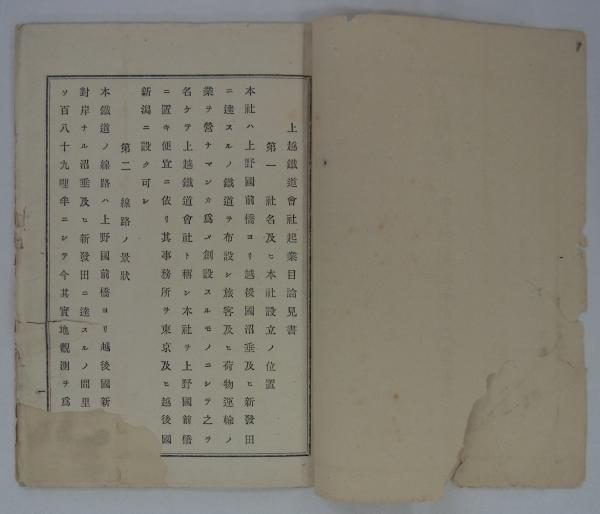 上越鐵道會社起業目論見書
第一　社名及ヒ本社設立ノ位置
本社ハ上野國前橋ヨリ越後國沼垂及ヒ新發田
ニ達スルノ鐵道ヲ布設シ旅客及ヒ荷物運輸ノ
業ヲ營ナマンカ爲メ創設スルモノニシテ之ヲ
名ケテ上越鐵道會社ト稱シ本社ヲ上野國前橋
ニ置キ便宜ニ依リ其事務所ヲ東京及ヒ越後國
新潟ニ設ク可シ
第二　線路ノ景狀
本鐵道ノ線路ハ上野國前橋ヨリ越後國新
對岸ナル沼垂及ヒ新發田ニ達スルノ間里
ソ百八十九哩半ニシテ今其實地觀測ヲ爲